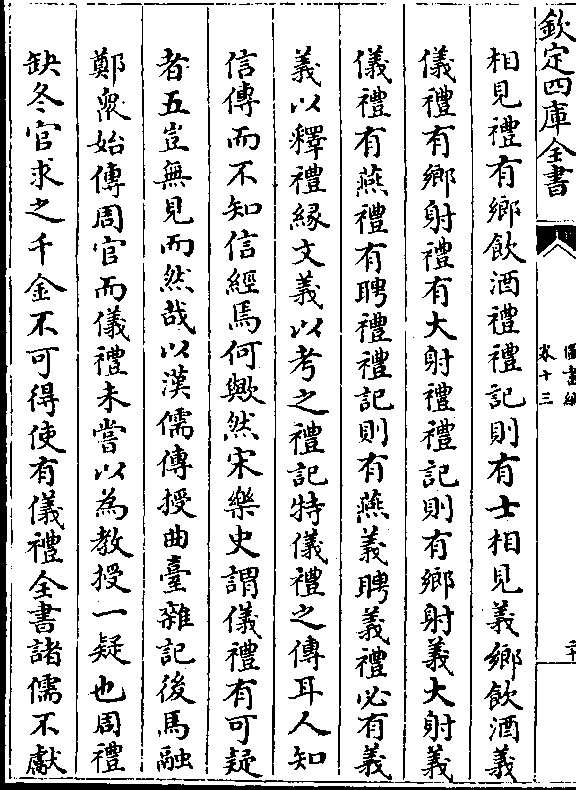 欽定四庫全書
圖書編
卷十三
二十
相見禮有鄉飲酒禮禮記則有士相見義鄉飲酒義
儀禮有鄉射禮有大射禮禮記則有鄉射義大射義
儀禮有燕禮有聘禮禮記則有燕義聘義禮必有義
義以釋禮緣文義以考之禮記特儀禮之傳耳人知
信傳而不知信經焉何歟然宋樂史謂儀禮有可疑
者五豈無見而然哉以漢儒傳授曲臺雜記後馬融
鄭衆始傳周官而儀禮未嘗以為教授一疑也周禮
缺冬官求之千金不可得使有儀禮全書諸儒不獻